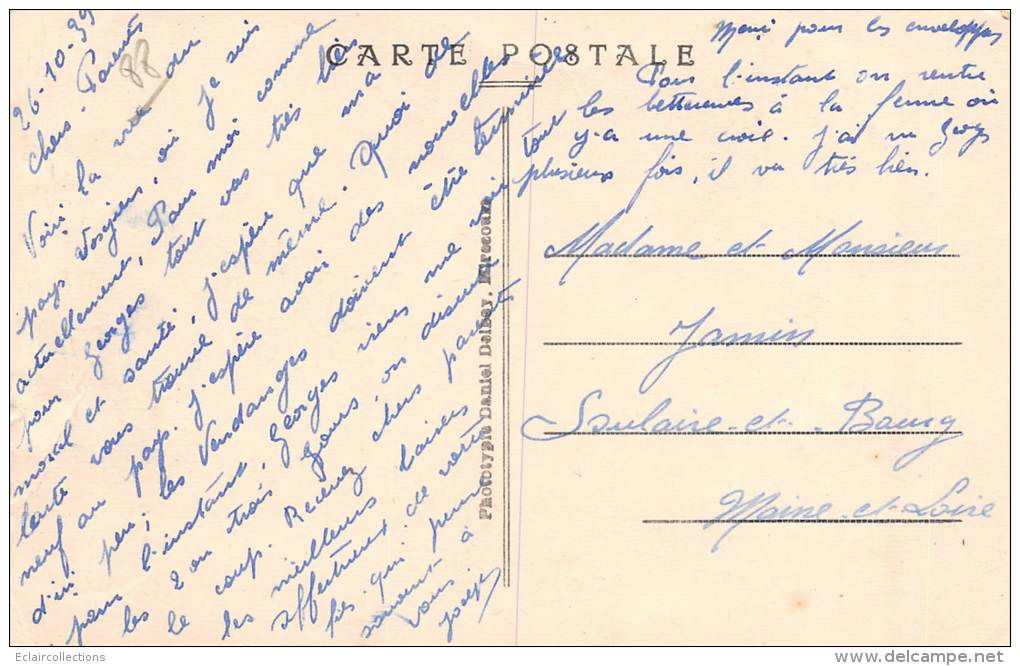 CARTE POSTALE
26-10-39
88
Chers Parents
Voici la vue du
pays Vosgien, où je suis
actuellement, Pour moi comme
pour Georges tout vas très bien
moral et santé, j'espère que ma
lente vous trouve de même. Quoi de
neuf au pays. J'espère avoir des nouvelles
d'ici peu; les Vendanges doivent être terminées
pour l'instant, Georges viens me voir
les 2 ou trois jours, on discute
le coup. Recevez chers parents
les meilleurs baisers
affectueux de votre
fils qui pense
souvent à
vous.
Merci pour les enveloppes
Pour l'instant on rentre
tout les betteraves à la ferme où
y-a une croix. J'ai vu Georges
plusieurs fois, il va très bien.
Madame et Monsieur
Jamin
Soulaire-et-Bourg
Maine-et-Loire
Phototypie Daniel Delbey, Mirecourt
Eclaircollections
delcampe.net